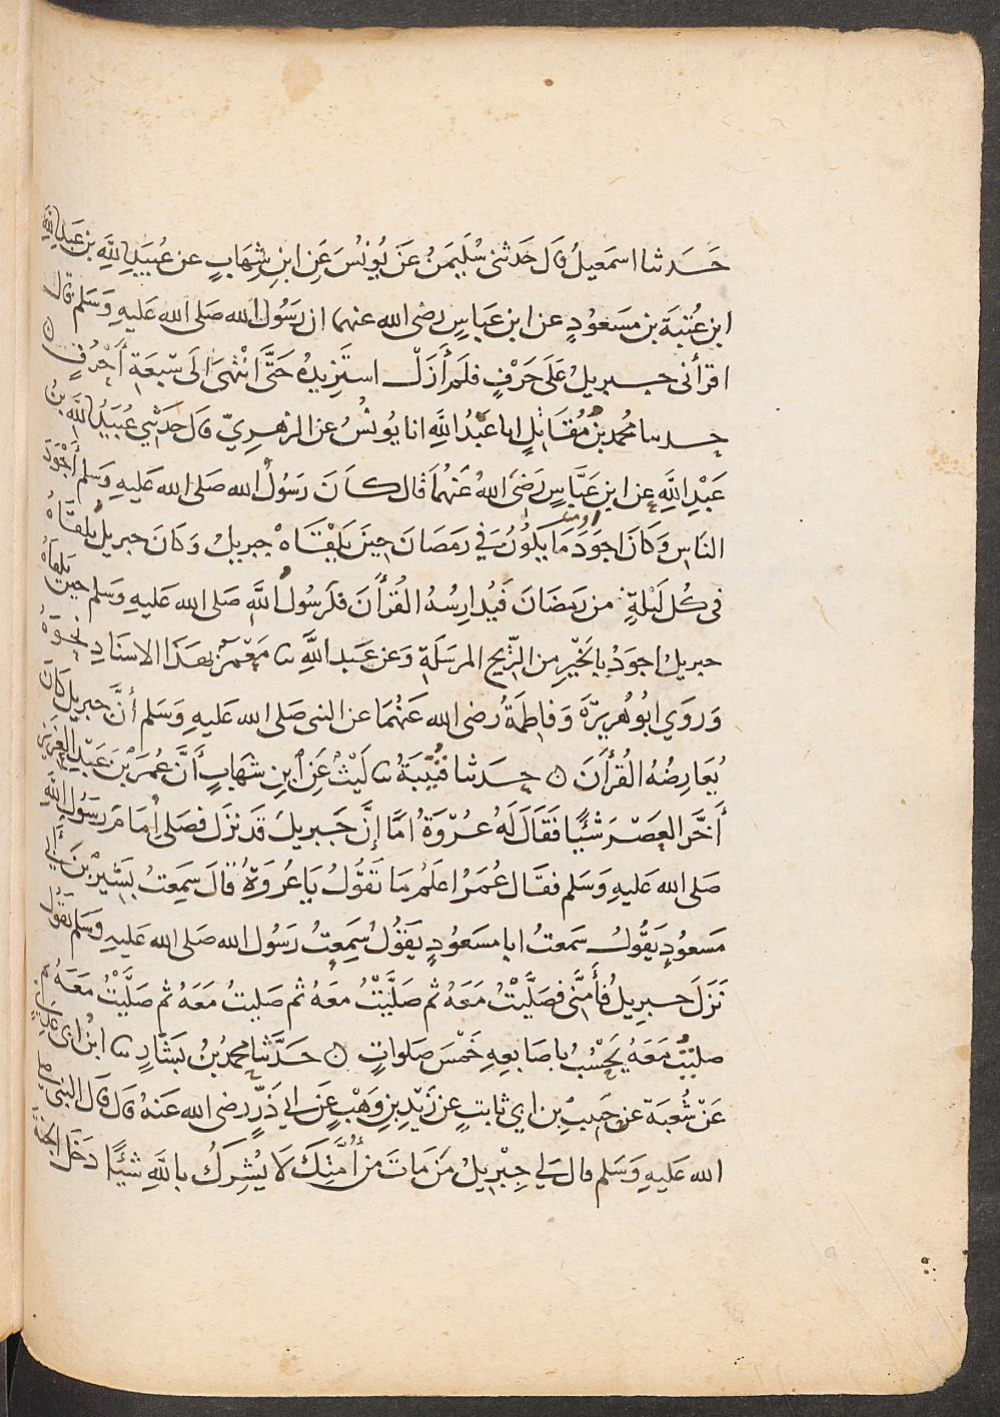 حَدثنا اسمَعِيلُ قَال حَدثني سُلَيمَنُ عَن يُونُسَ عَنِ ابنِ شِهَابٍ عن عُبَيدِ اللَّهِ بن عَبدِ الله
ابن عُتبَة بن مسَعودٍ عن ابن عَباسٍ رضى الله عنهما ان رَسُول الله صَلى الله عَليهِ وَسَلم قال
اقرأنى جبريلُ عَلَى حَرفٍ فلَم أَزَلْ استَزِيدُهُ حَتَّى انْتَهَى الَى سَبعَةِ أَحْرُفٍ ۝
حدثنا محمد بنُ مُقَاتِلٍ انا عَبْدُ اللَّهِ انا يُونُسُ عن الزهرِيّ قال حَدثنِي عُبَيدُ اللَّهِ بنُ
عَبْدِ اللَّهِ عن ابنِ عَبَّاسٍ رَضىَ اللهُ عَنهُمَا قال كَانَ رَسُولُ الله صَلى الله عَليهِ وَسَلم أَجْوَدَ
النَاسِ وَكانَ اجوَدَ مَا يَكُونُ في رَمَضَانَ حِينَ يَلقَاهُ جبريلُ وَكَانَ جبريلُ يلقَاهُ
فى كُل لَيلَةٍ من رَمضَانَ فَيُدارِسُهُ القُرأَنَ فلَرسُولُ اللَّهِ صَلى الله عَليهِ وَسَلم حين يَلقَاهُ
جبريلُ اجوَدُ بِالخَيْرِ من الرِّيحِ المرسَلَةِ وَعن عَبد اللَّهِ نا مَعْمَرٌ بهذَا الاسنَادِ نحوَهُ
وَرَوَي ابُو هُرَيرَة وَفاطِمَةُ رضى الله عَنهُمَا عن النبى صَلى الله عَليهِ وَسَلم أنَّ جبريلَ كَانَ
يُعَارِضُهُ القُرأَنَ ۝ حَدثنا قُتَيبَةُ نا لَيْثٌ عَنِ ابنِ شهَابٍ أَنَّ عُمَرَ بْنَ عَبْدِ العَزِيزِ
أَخَّرَ العصْرَ شَيْئًا فَقَالَ لَهُ عُرْوَةُ امَا إنَّ جَبريلَ قَد نزَل فصَلى امَامَ رَسُول اللَّهِ
صَلى الله عَليهِ وَسَلم فقال عُمَرُ اعلَمْ مَا تَقُولُ يَا عُروَةُ قالَ سَمِعتُ بَشيْرَ بْنَ أَبِي
مَسعودٍ يَقُولُ سَمعتُ ابا مسَعُودٍ يَقُولُ سَمِعتُ رَسُولَ الله صَلى الله عَليهِ وَسَلم يَقُولُ
نَزَلَ جبرِيلُ فأَمَنِّى فصَلَّيْتُ مَعَهُ ثم صَلَّيْتُ معَهُ ثم صَليتُ مَعَهُ ثم صَلَّيْتُ معَهُ ثم
صليتُ مَعَهُ يَحْسُبُ باصَابعِهِ خَمْسَ صَلَواتٍ ۝ حَدَّثنا محمد بنُ بَشَّارٍ نا ابنُ ابي عَدِيٍّ
عَنْ شُعبَة عن حَبيبِ بن ابي ثابتٍ عن زَيْدِ بنِ وَهْبٍ عَن ابي ذَرٍّ رضى الله عَنهُ قال قَال النبى صلى
الله عَليهِ وَسَلم قال لي جِبْرِيلُ مَن مَاتَ مِن أُمَّتِكَ لَا يُشرِكُ بالله شَيئًا دَخَلَ الجنةَ